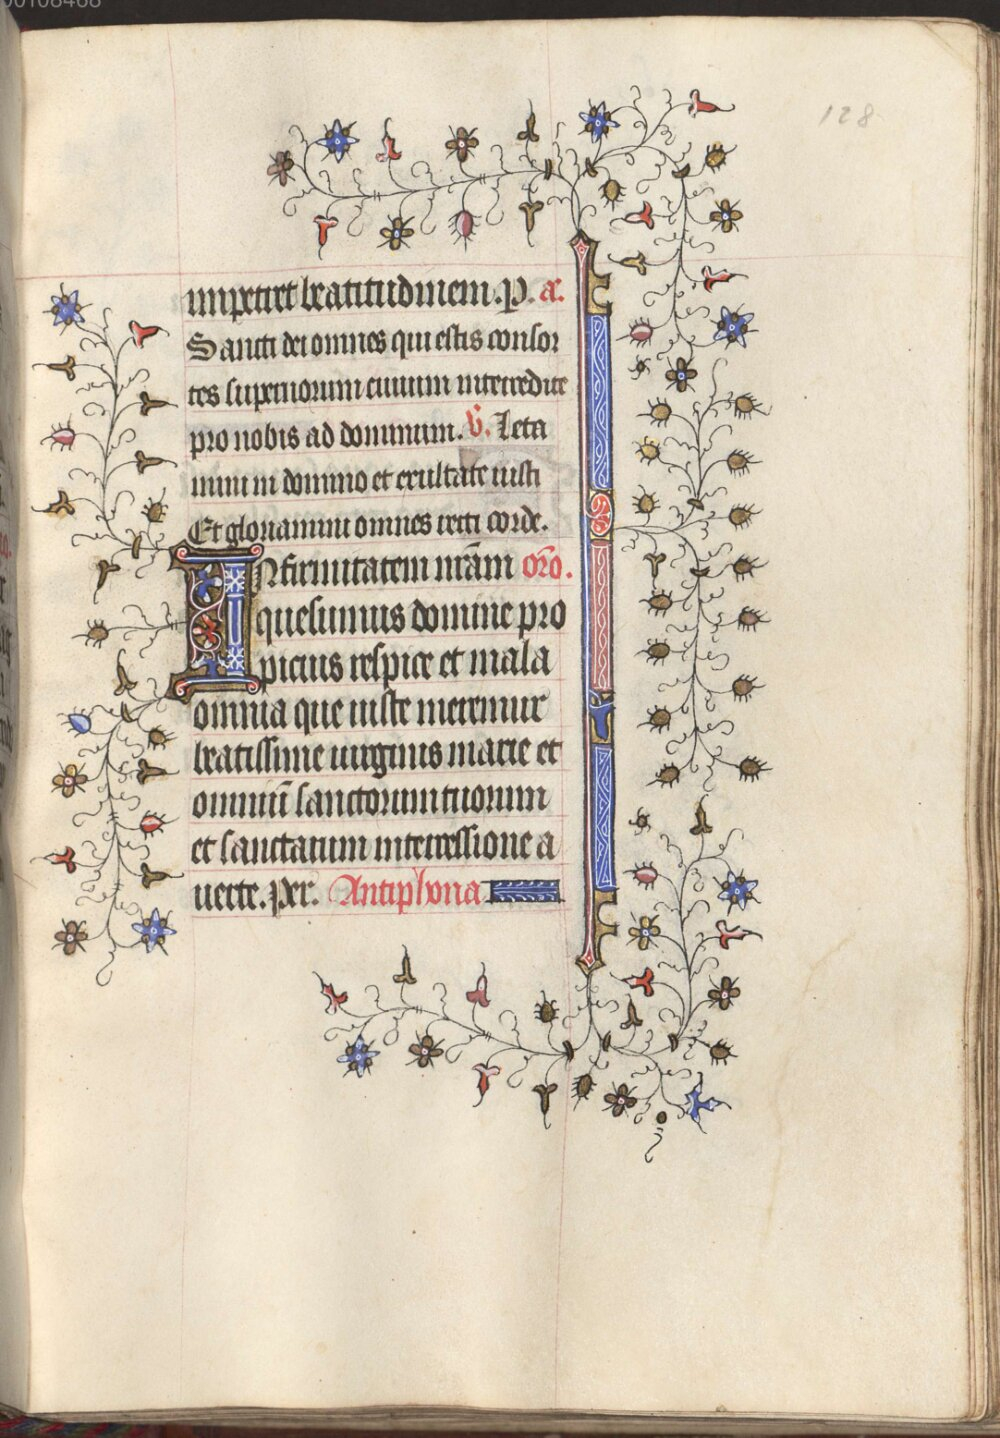 128
impetret beatitudinem. P. a.
Sancti dei omnes qui estis consor
tes supernorum ciuium intercedite
pro nobis ad dominum. V. Leta
mini in domino et exultate iusti
Et gloriamini omnes recti corde.
Infirmitatem nr̄am oro̅.
quesumus domine pro
picius respice et mala
omnia que iuste meremur
beatissime uirginis marie et
omniū sanctorum tuorum
et sanctarum intercessione a
uerte. Per. Antiphona